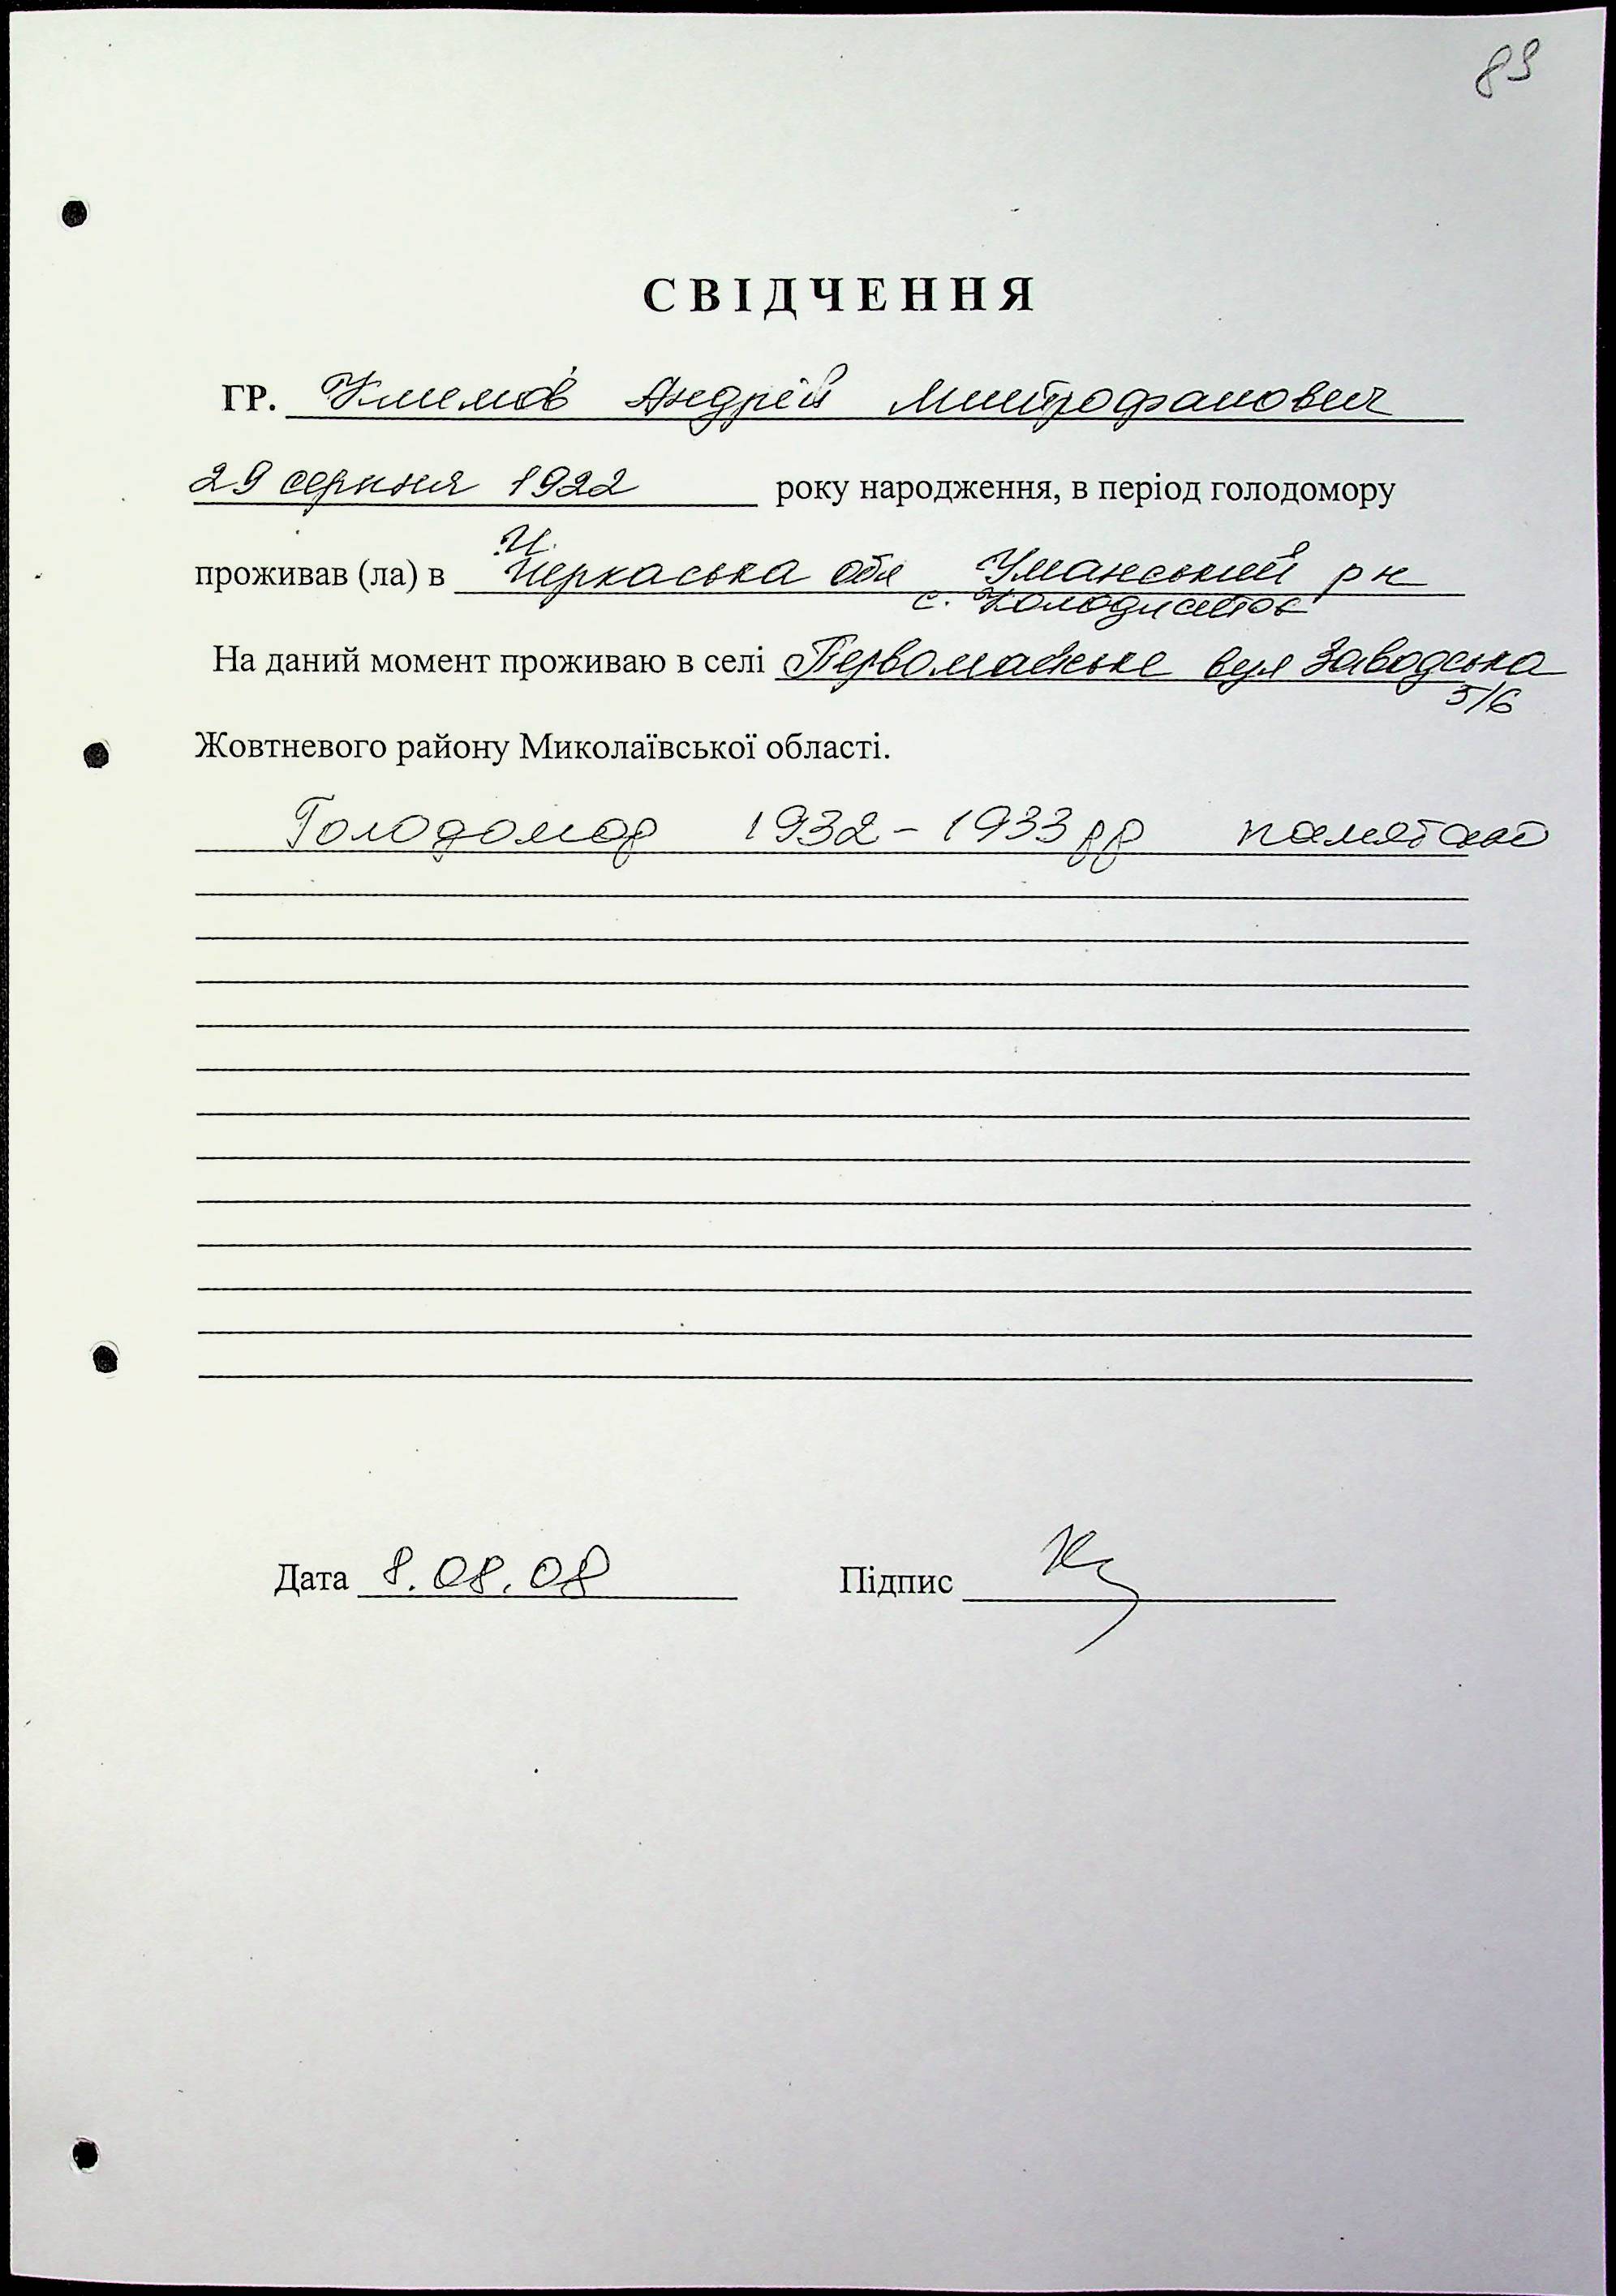 89
СВІДЧЕННЯ
ГР. Климов Андрій Митрофанович
29 серпня 1922 року народження, в період голодомору
Ч.
проживав (ла) в Черкаська обл Уманський рн
с. Колодисток
На даний момент проживаю в селі Первомайське вул Заводська
5/6
Жовтневого району Миколаївської області.
Голодомор 1932-1933 рр памятаю
Дата 8.08.08 Підпис